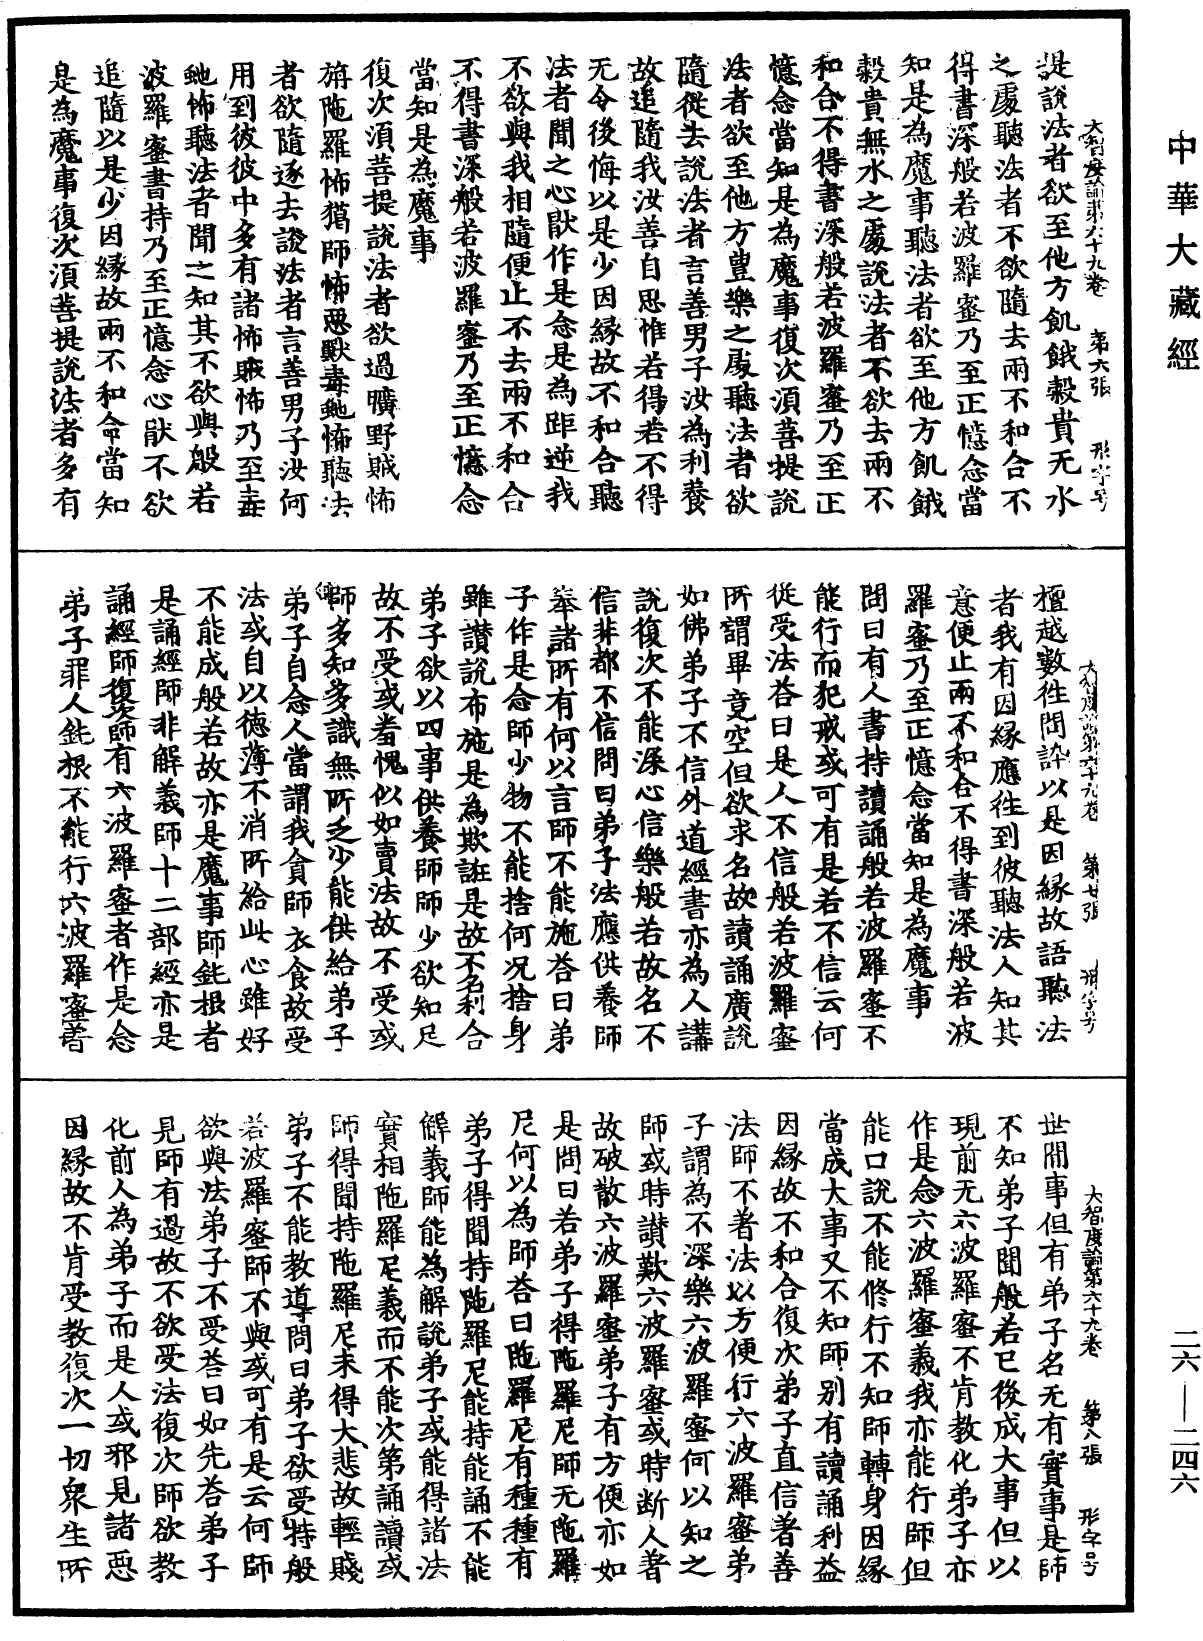 中華大藏經
大智度論第六十九卷 第六張 形字号
提說法者欲至他方飢餓穀貴无水
之處聽法者不欲隨去兩不和合不
得書深般若波羅蜜乃至正憶念當
知是為魔事聽法者欲至他方飢餓
穀貴無水之處說法者不欲去兩不
和合不得書深般若波羅蜜乃至正
憶念當知是為魔事復次須菩提說
法者欲至他方豊樂之處聽法者欲
隨從去說法者言善男子汝為利養
故追隨我汝善自思惟若得若不得
无令後悔以是少因緣故不和合聽
法者聞之心猒作是念是為距逆我
不欲與我相隨便止不去兩不和合
不得書深般若波羅蜜乃至正憶念
當知是為魔事
復次須菩提說法者欲過曠野賊怖
旃陁羅怖獦師怖惡獸毒虵怖聽法
者欲隨逐去說法者言善男子汝何
用到彼彼中多有諸怖賊怖乃至毒
虵怖聽法者聞之知其不欲與般若
波羅蜜書持乃至正憶念心猒不欲
追隨以是少因緣故兩不和合當知
是為魔事復次須菩提說法者多有
大智度論第六十九卷 第七張 形字号
檀越數徃問訊以是因緣故語聽法
者我有因緣應徃到彼聽法人知其
意便止兩不和合不得書深般若波
羅蜜乃至正憶念當知是為魔事
問曰有人書持讀誦般若波羅蜜不
能行而犯戒或可有是若不信云何
從受法荅曰是人不信般若波羅蜜
所謂畢竟空但欲求名故讀誦廣說
如佛弟子不信外道經書亦為人講
說復次不能深心信樂般若故名不
信非都不信問曰弟子法應供養師
奉諸所有何以言師不能施荅曰弟
子作是念師少物不能捨何況捨身
雖讚說布施是為欺誑是故不名和合
弟子欲以四事供養師師少欲知足
故不受或羞愧似如賣法故不受或
師多知多識無所乏少能供給弟子
弟子自念人當謂我貪師衣食故受
法或自以德薄不消所給此心雖好
不能成般若故亦是魔事師鈍根者
是誦經師非解義師十二部經亦是
誦經師復次師有六波羅蜜者作是念
弟子罪人鈍根不能行六波羅蜜著
大智度論第六十九卷 第八張 形字号
世閒事但有弟子名无有實事是師
不知弟子聞般若已後成大事但以
現前无六波羅蜜不肯教化弟子亦
作是念六波羅蜜義我亦能行師但
能口說不能修行不知師轉身因緣
當成大事又不知師別有讀誦利益
因緣故不和合復次弟子直信著善
法師不著法以方便行六波羅蜜弟
子謂為不深樂六波羅蜜何以知之
師或時讚歎六波羅蜜或時断人著
故破散六波羅蜜弟子有方便亦如
是問曰若弟子得陁羅尼師无陁羅
尼何以為師荅曰陁羅尼有種種有
弟子得聞持陁羅尼能持能誦不能
解義師能為解說弟子或能得諸法
實相陁羅尼義而不能次第誦讀或
師得聞持陁羅尼未得大悲故輕賤
弟子不能教導問曰弟子欲受持般
若波羅蜜師不與或可有是云何師
欲與法弟子不受荅曰如先荅弟子
見師有過故不欲受法復次師欲教
化前人為弟子而是人或邪見諸惡
因緣故不肯受教復次一切眾生所
二六—二四六